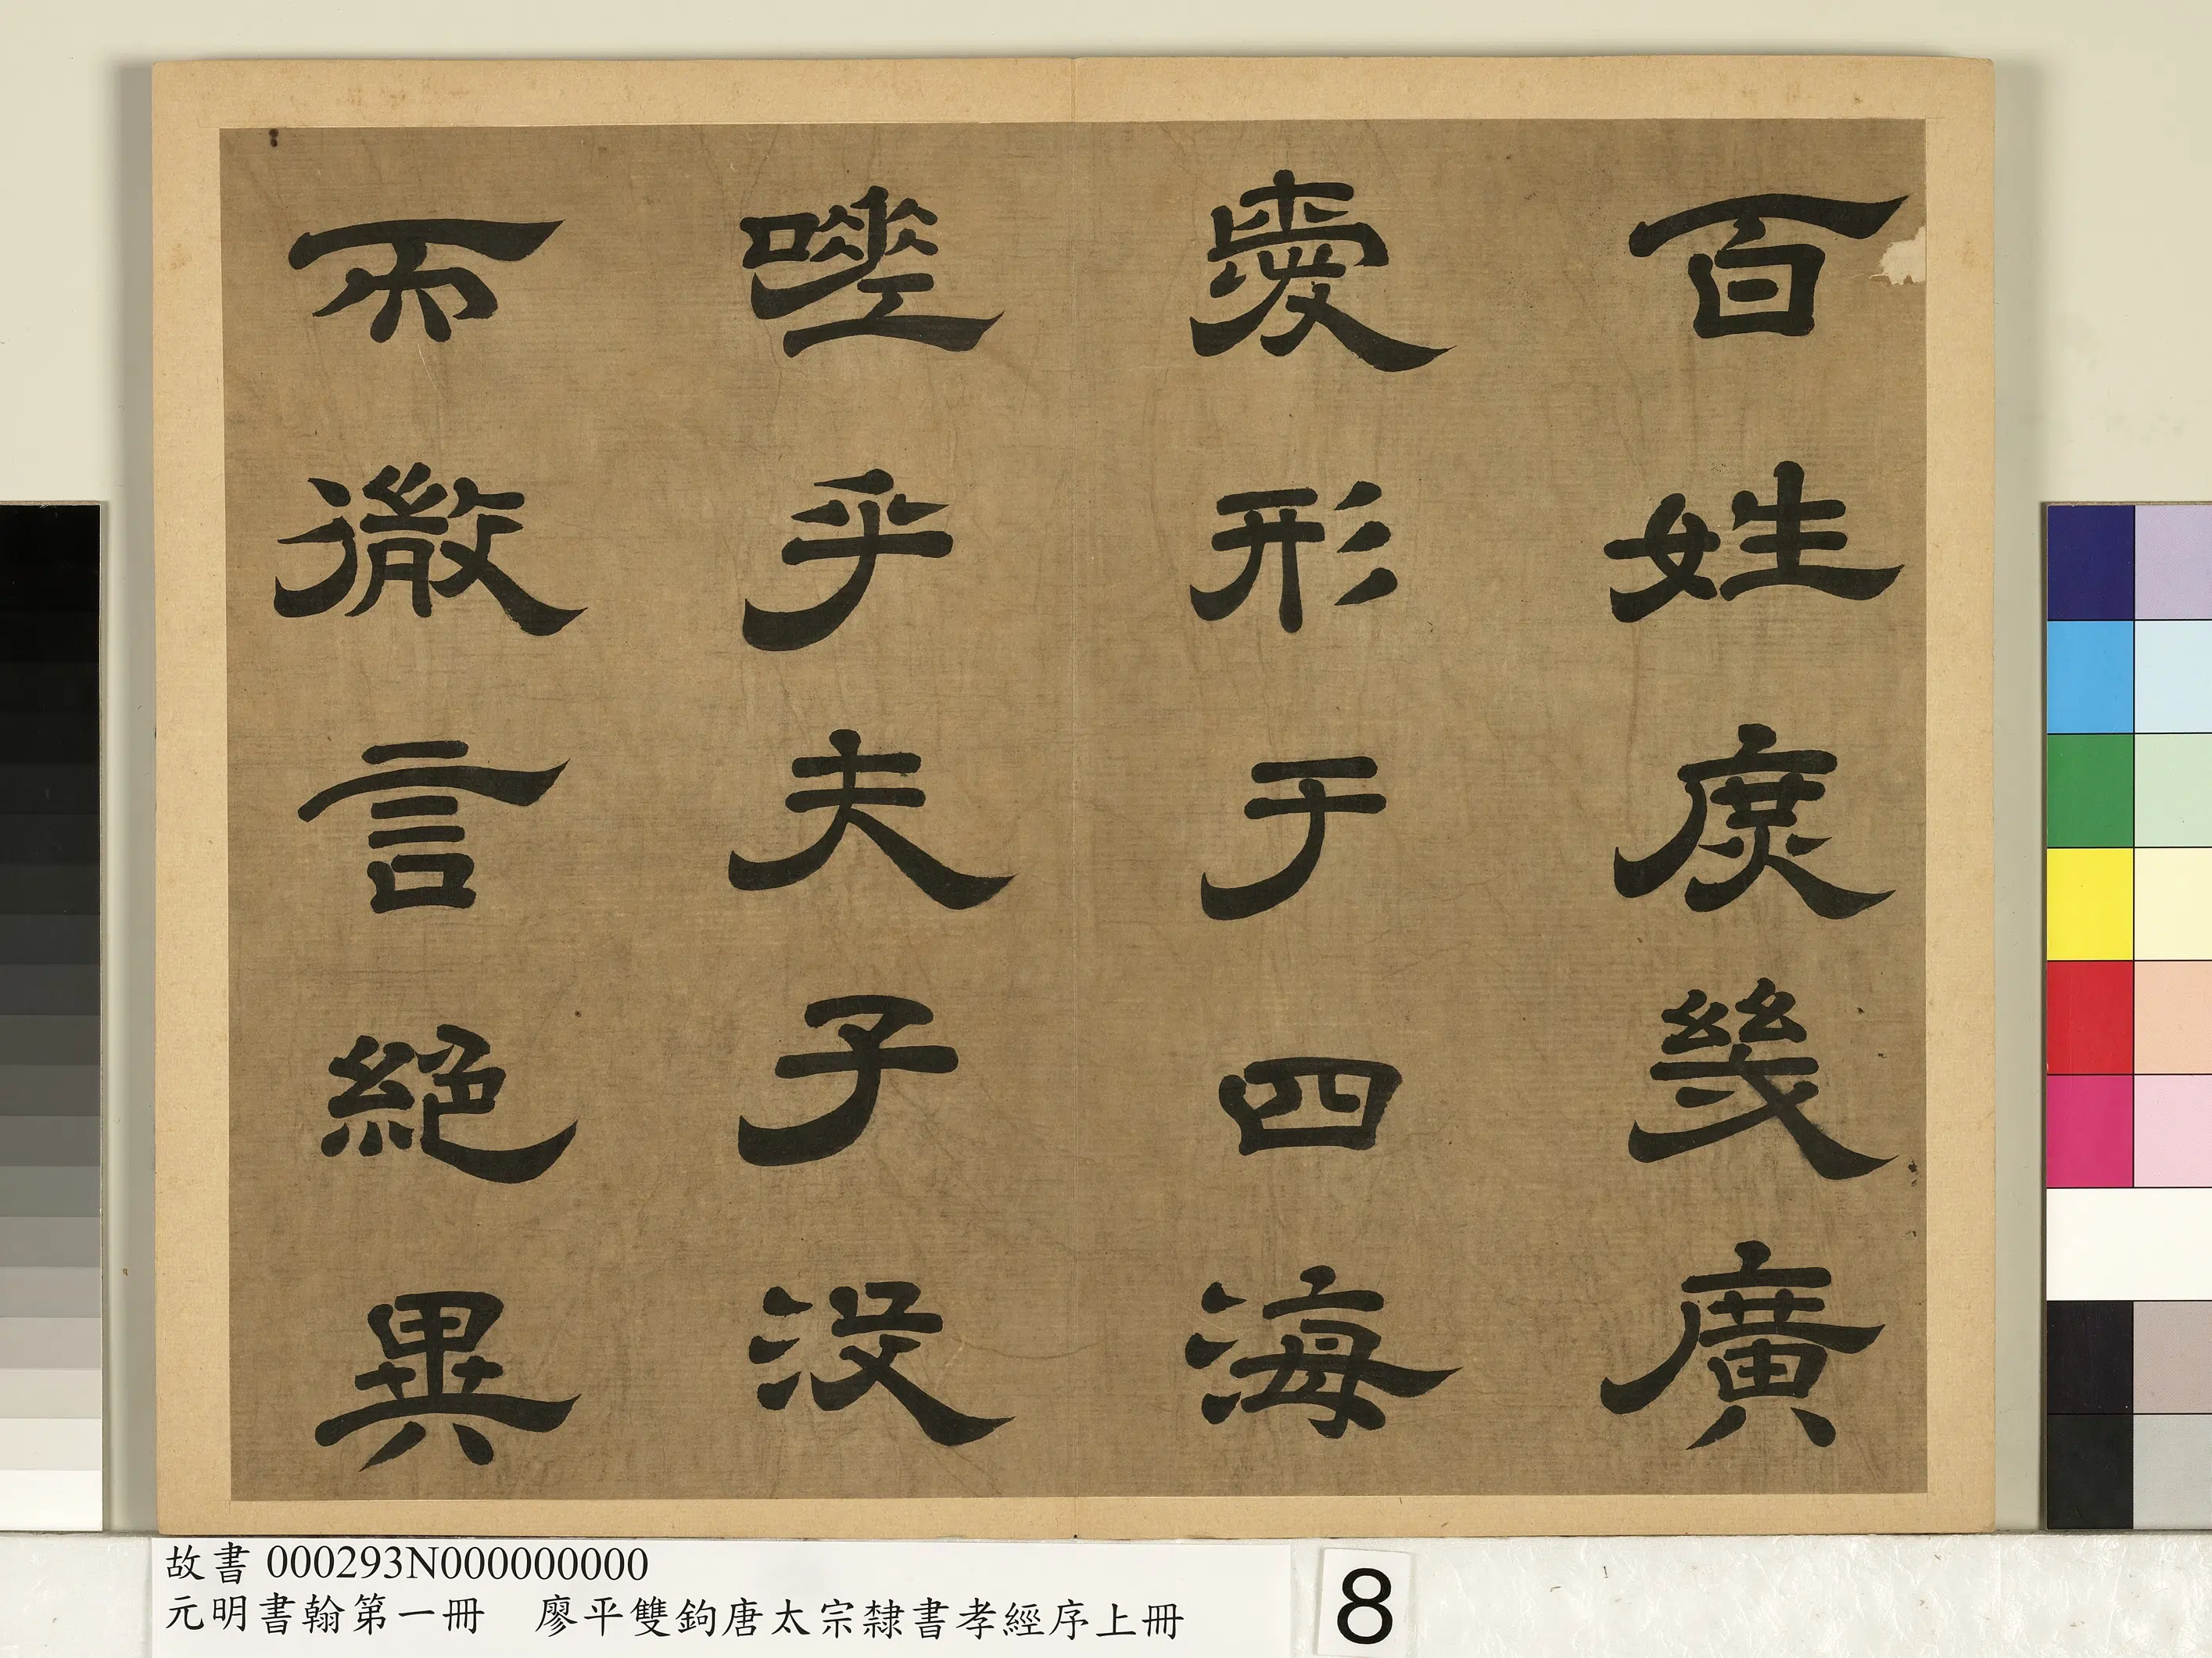 百姓庶幾廣
愛形于四海
嗟乎夫子没
而微言絕異
故書 000293N000000000
元明書翰第一冊　廖平雙鉤唐太宗隸書孝經序上冊
8